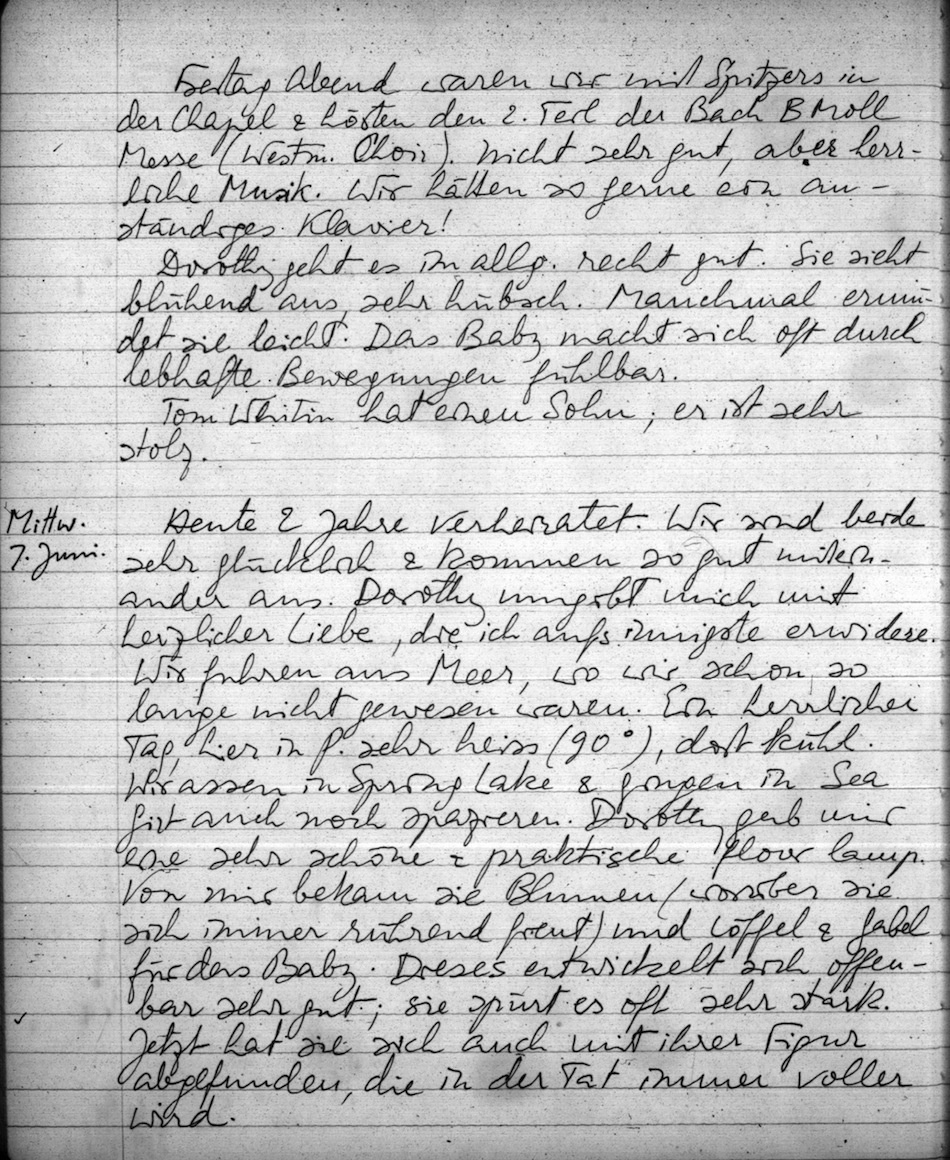 Freitag Abend waren wir mit Spitzers in
der Chapel & hörten den 2. Teil der Bach B Moll
Messe (Westm. Choir). Nicht sehr gut, aber herr-
liche Musik. Wir hätten so gerne ein an-
ständiges Klavier!
Dorothy geht es im allg. recht gut. Sie sieht
blühend aus, sehr hübsch. Manchmal ermü-
det sie leicht. Das Baby macht sich oft durch
lebhafte Bewegungen fühlbar.
Tom Whitin hat einen Sohn; er ist sehr
stolz.
Mittw.
7. Juni.
Heute 2 Jahre verheiratet. Wir sind beide
sehr glücklich & kommen so gut mitein-
ander aus. Dorothy umgibt mich mit
herzlicher Liebe, die ich aufs innigste erwidere.
Wir fuhren ans Meer, wo wir schon so
lange nicht gewesen waren. Ein herrlicher
Tag, hier in P. sehr heiss (90°), dort kühl.
Wir assen in Spring Lake & gingen in Sea
Girt auch noch spazieren. Dorothy gab mir
eine sehr schöne & praktische floor lamp.
Von mir bekam sie Blumen (worüber sie
sich immer rührend freut) und Löffel & Gabel
für das Baby. Dieses entwickelt sich offen-
bar sehr gut; sie spürt es oft sehr stark.
Jetzt hat sie sich auch mit ihrer Figur
abgefunden, die in der Tat immer voller
wird.